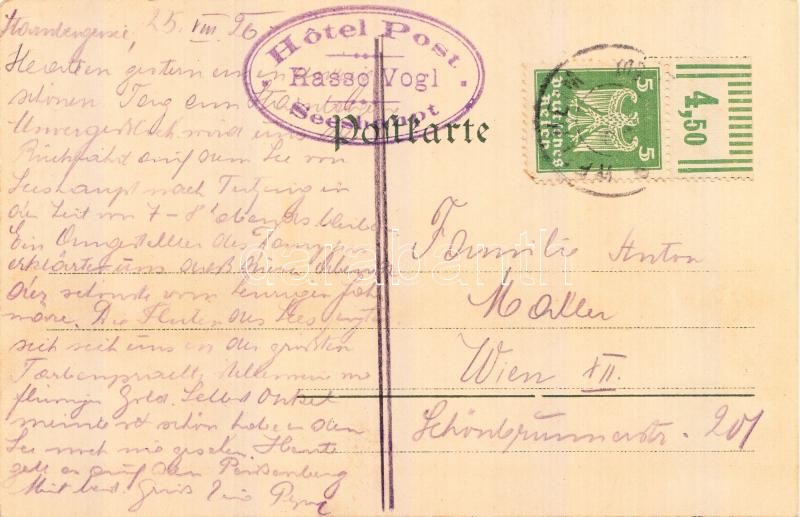 Starnbergersee, 25. VIII. 26
Hatten gestern einen
schönen Tag am Starnbergersee
Unvergesslich wird uns die
Rückfahrt auf dem See von
Seeshaupt nach Tutzing in
der Zeit von 7–8h abends bleiben
Ein Angestellter des Dampfers
erklärte uns, daß dieser Abend
der schönste vom heurigen Jahr
wäre. Die Fluten des Sees
sich uns in der grössten
Farbenpracht,
Gold. Selbst Onkel
meinte so schön habe er den
See noch nie gesehen. Heute
geht es auf den Peissenberg
Mit herzl. Gruß
Hôtel Post
Rasso Vogl
Seeshaupt
Postkarte
5 5
Deutsches Reich
4,50
Familie Anton
Maller
Wien XII.
Schönbrunnerstr. 201
darabanth